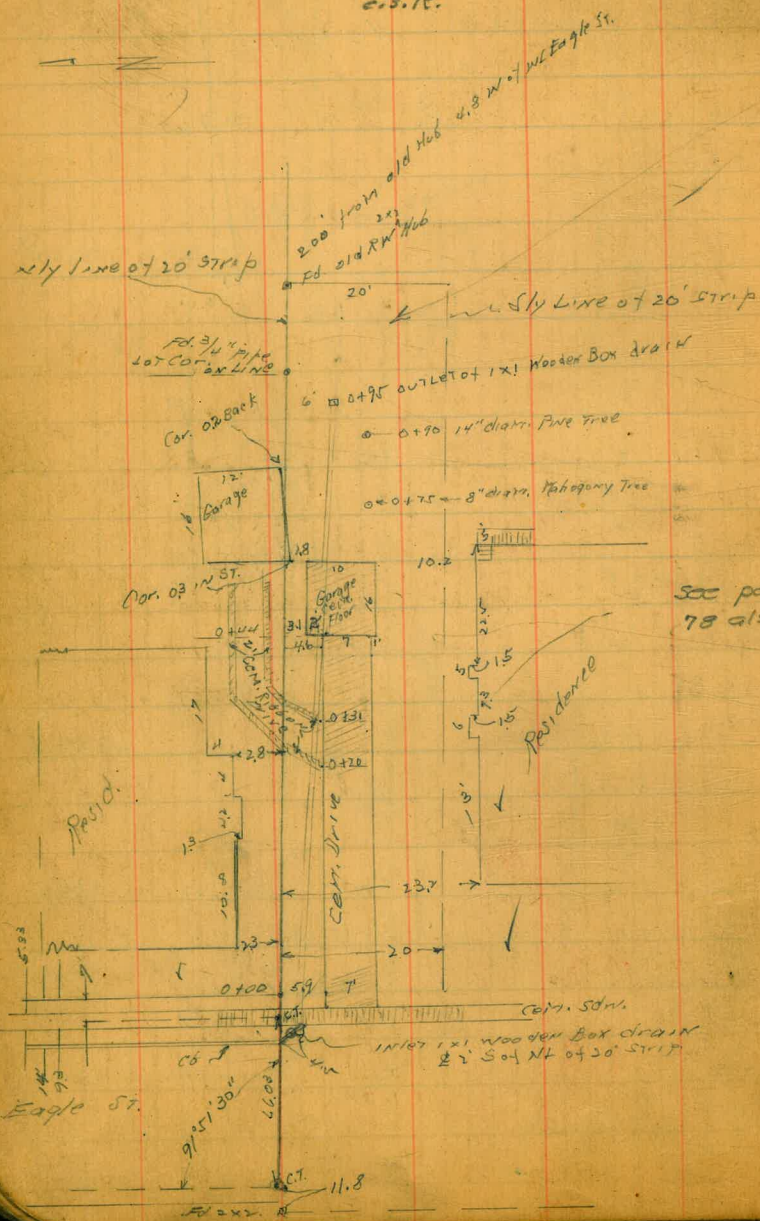 C.S.R.
200' from old Hub 4.8 W of WL Eagle St.
2x2
Fd. old RW Hub
Nly Line of 20' Strip
20'
Sly Line of 20' Strip
Fd. 3/4" Pipe
Lot Cor.
on Line
6'
0+95 outlet of 1x1 Wooden Box drain
Cor. 0.2 Back
0+90 14" diam. Pine Tree
12'
Garage
16'
0+75 8" diam. Mahogany Tree
5'
1.8
10.2
Cor. 0.3 in St.
10
Garage
Cem.
Floor
16
22.5
See
78
0+44
3.1
4.6
7
1'
2'
Com. Drive
5
1.5
9.3
6
1.5
Residence
0+31
17
4
2.8
0+20
4
4.2
Resid.
1.3
13'
Cem. Drive
10.8
23.7
5.33
2.3
20
9'
0+00
5.9
7'
C.T.
Com. Sdw.
Inlet 1x1 Wooden Box drain
2' S of NL of 20' Strip
Cb
4.5
14'
9.3
Eagle St.
91°51'30"
66.03
C.T.
11.8
Fd 2x2.